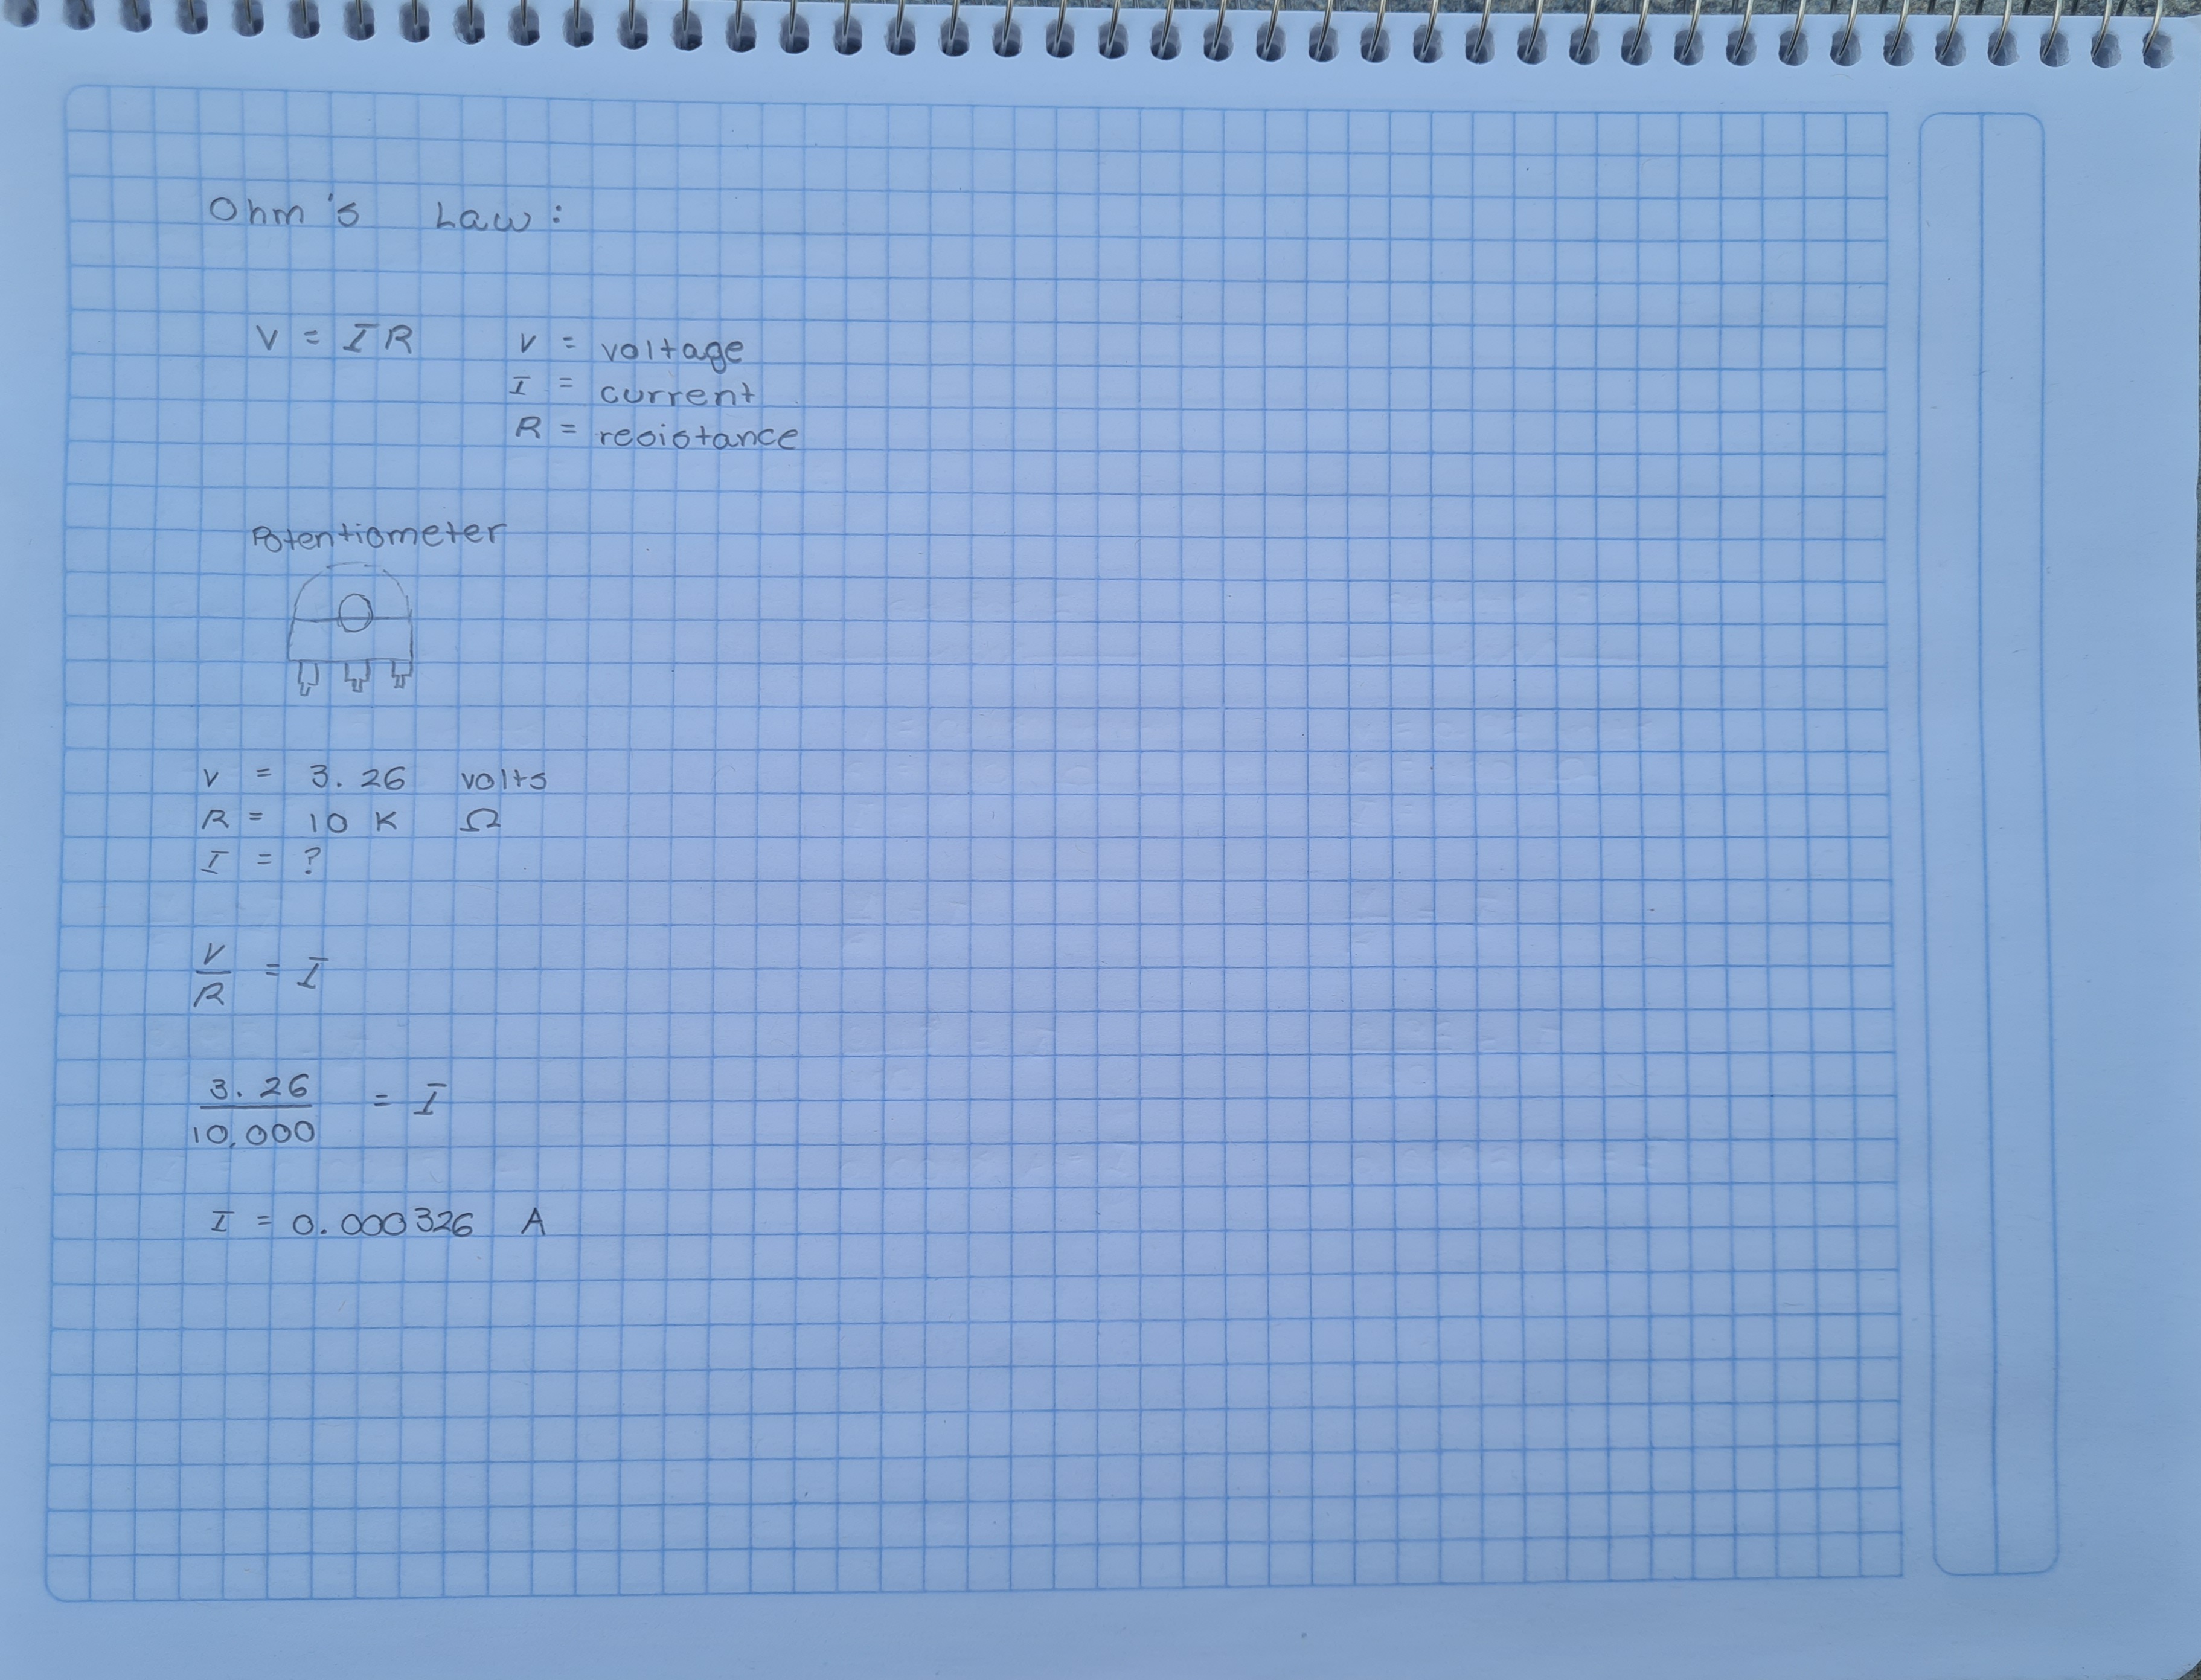 Ohm's Law:
V = IR
V = voltage
I = current
R = resistance
Potentiometer
V = 3.26 volts
R = 10 K Ω
I = ?
V
R
= I
3.26
10,000
= I
I = 0.000326 A